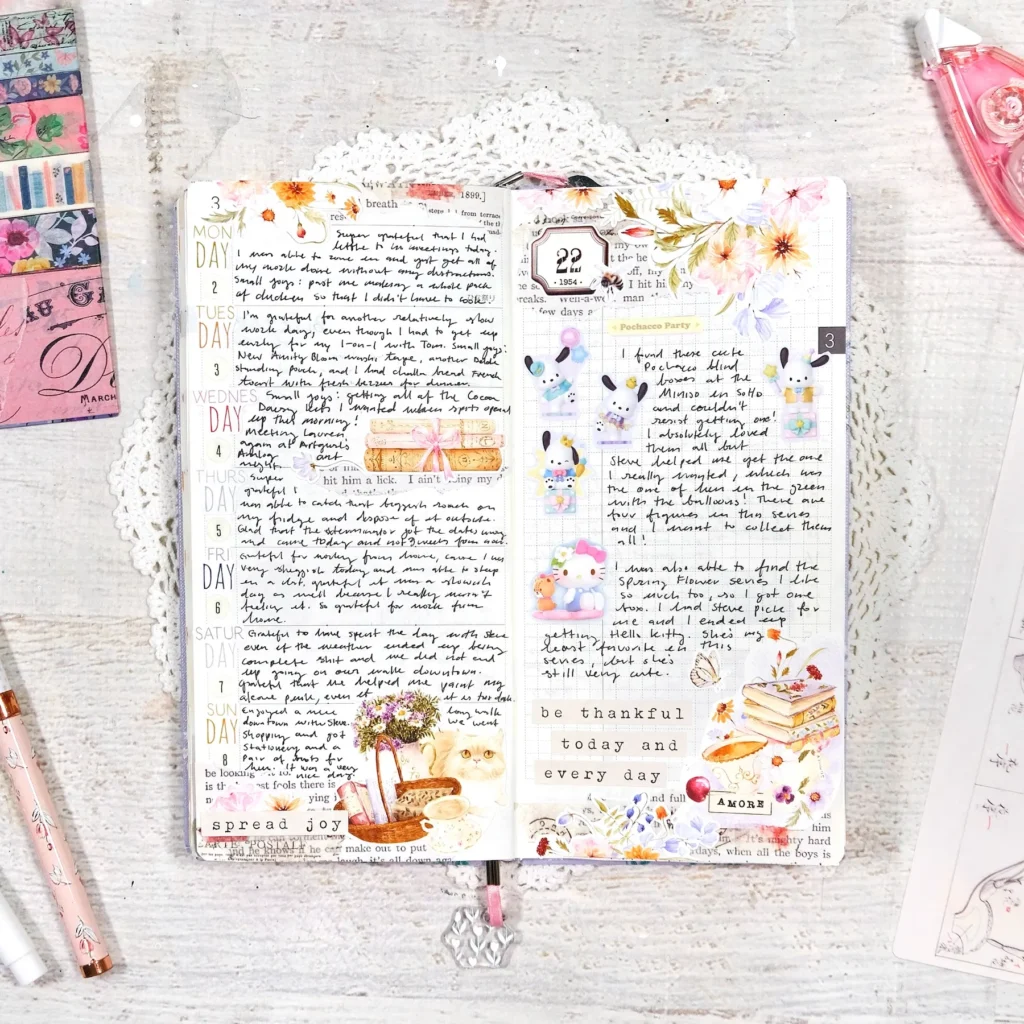 3
MON
DAY
2
Super grateful that I had
little to no meetings today.
I was able to zone in and just get all of
my work done without any distractions.
Small joys: past me making a whole pack
of chicken so that I didn't have to cook
TUES
DAY
3
I'm grateful for another relatively slow
work day, even though I had to get up
early for my 1-on-1 with Tom. Small joys:
New Amity Bloom washi tape, another
standing pouch, and I had challa bread French
toast with fresh berries for dinner.
WEDNES
DAY
4
Small joys: getting all of the Cocoa
Daisy kits I wanted when spots opened
up this morning!
Meeting Lauren
again at Artgirls
Analog art
night.
THURS
DAY
5
Super
grateful I
was able to catch that biggish roach on
my fridge and dispose of it outside.
Glad that the exterminator got the dates wrong
and came today and not 2 weeks from now.
FRI
DAY
6
Grateful for working from home, cause I was
very sluggish today and was able to sleep
in a lot. Grateful it was a slowish
day as well because I really wasn't
feeling it. So grateful for work from
home.
SATUR
DAY
7
Grateful to have spent the day with Steve
even if the weather ended up being
complete shit and we did not end
up going on our walk downtown.
Grateful that he helped me paint my
alcove peach, even if it is too dark.
SUN
DAY
8
Enjoyed a nice long walk
downtown with Steve. we went
Shopping and got
Stationery and a
pair of for
her. It was a very
nice day.
1899,]
breath
from
hit him a lick. I ain't my
be looking
is the est fools there is
ying
spread joy
ARTE POSTALE
and he knows if he can make out to put
laugh, it's all down
MARCH
22
1954
my
the he
off, my
I hit hi
breaks. Well-a-we man
few days
3
Pochacco Party
I find these cute
Pochacco blind
boxes at the
Miniso in SoHo
and couldn't
resist getting one!
I absolutely loved
them all but
Steve helped me get the one
I really wanted, which was
the one of him in the green
with the balloons! There are
four figures in this series
and I want to collect them
all!
I was also able to find the
Spring Flower series I like
so much too, so I got one
box. I had Steve pick for
me and I ended up
getting Hello Kitty. She's my
least favorite in this
series, but she's
still very cute.
be thankful
today and
every day
AMORE
and full
him
It's mighty hard
days, when all the boys is